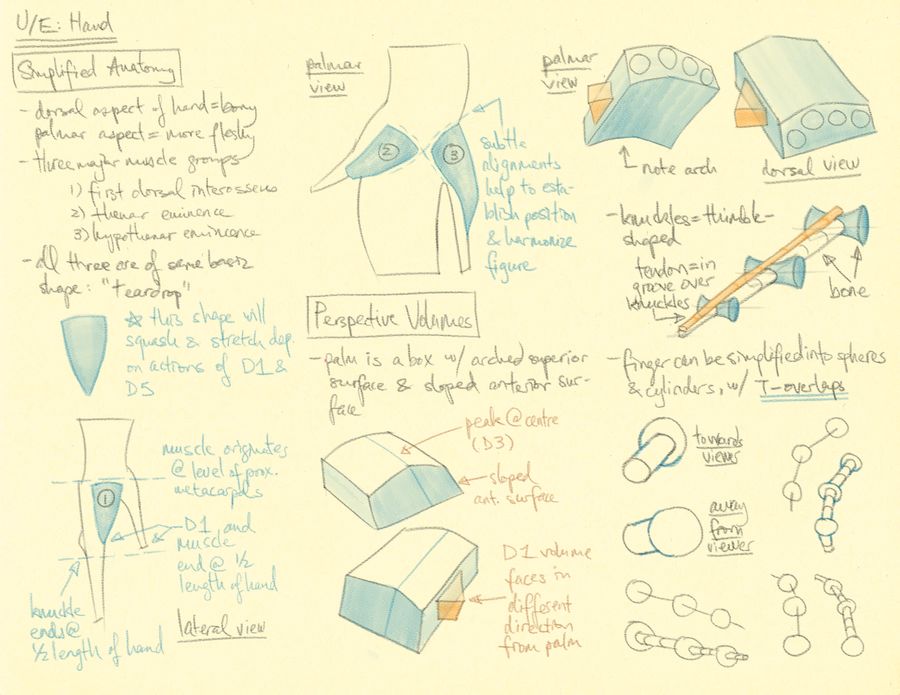 U/E: Hand
Simplified Anatomy
- dorsal aspect of hand = bony
palmar aspect = more fleshy
- three major muscle groups
1) first dorsal interosseus
2) thenar eminence
3) hypothenar eminence
- all three are of same basic
shape: "teardrop"
☆ this shape will
squash & stretch dep.
on actions of D1 &
D5
muscle originates
@ level of prox.
metacarpals
1
D1 and
muscle
end @ 1/2
length of hand
knuckle
ends @
1/2 length of hand
lateral view
palmar
view
2
3
subtle
alignments
help to esta-
blish position
& harmonize
figure
Perspective Volumes
- palm is a box w/ arched superior
surface & sloped anterior sur-
face
peak @ centre
(D3)
sloped
ant. surface
D1 volume
faces in
different
direction
from palm
palmar
view
note arch
dorsal view
- knuckles = thimble-
shaped
tendon = in
groove over
knuckles
bone
- finger can be simplified into spheres
& cylinders, w/ T-overlaps
towards
viewer
away
from
viewer